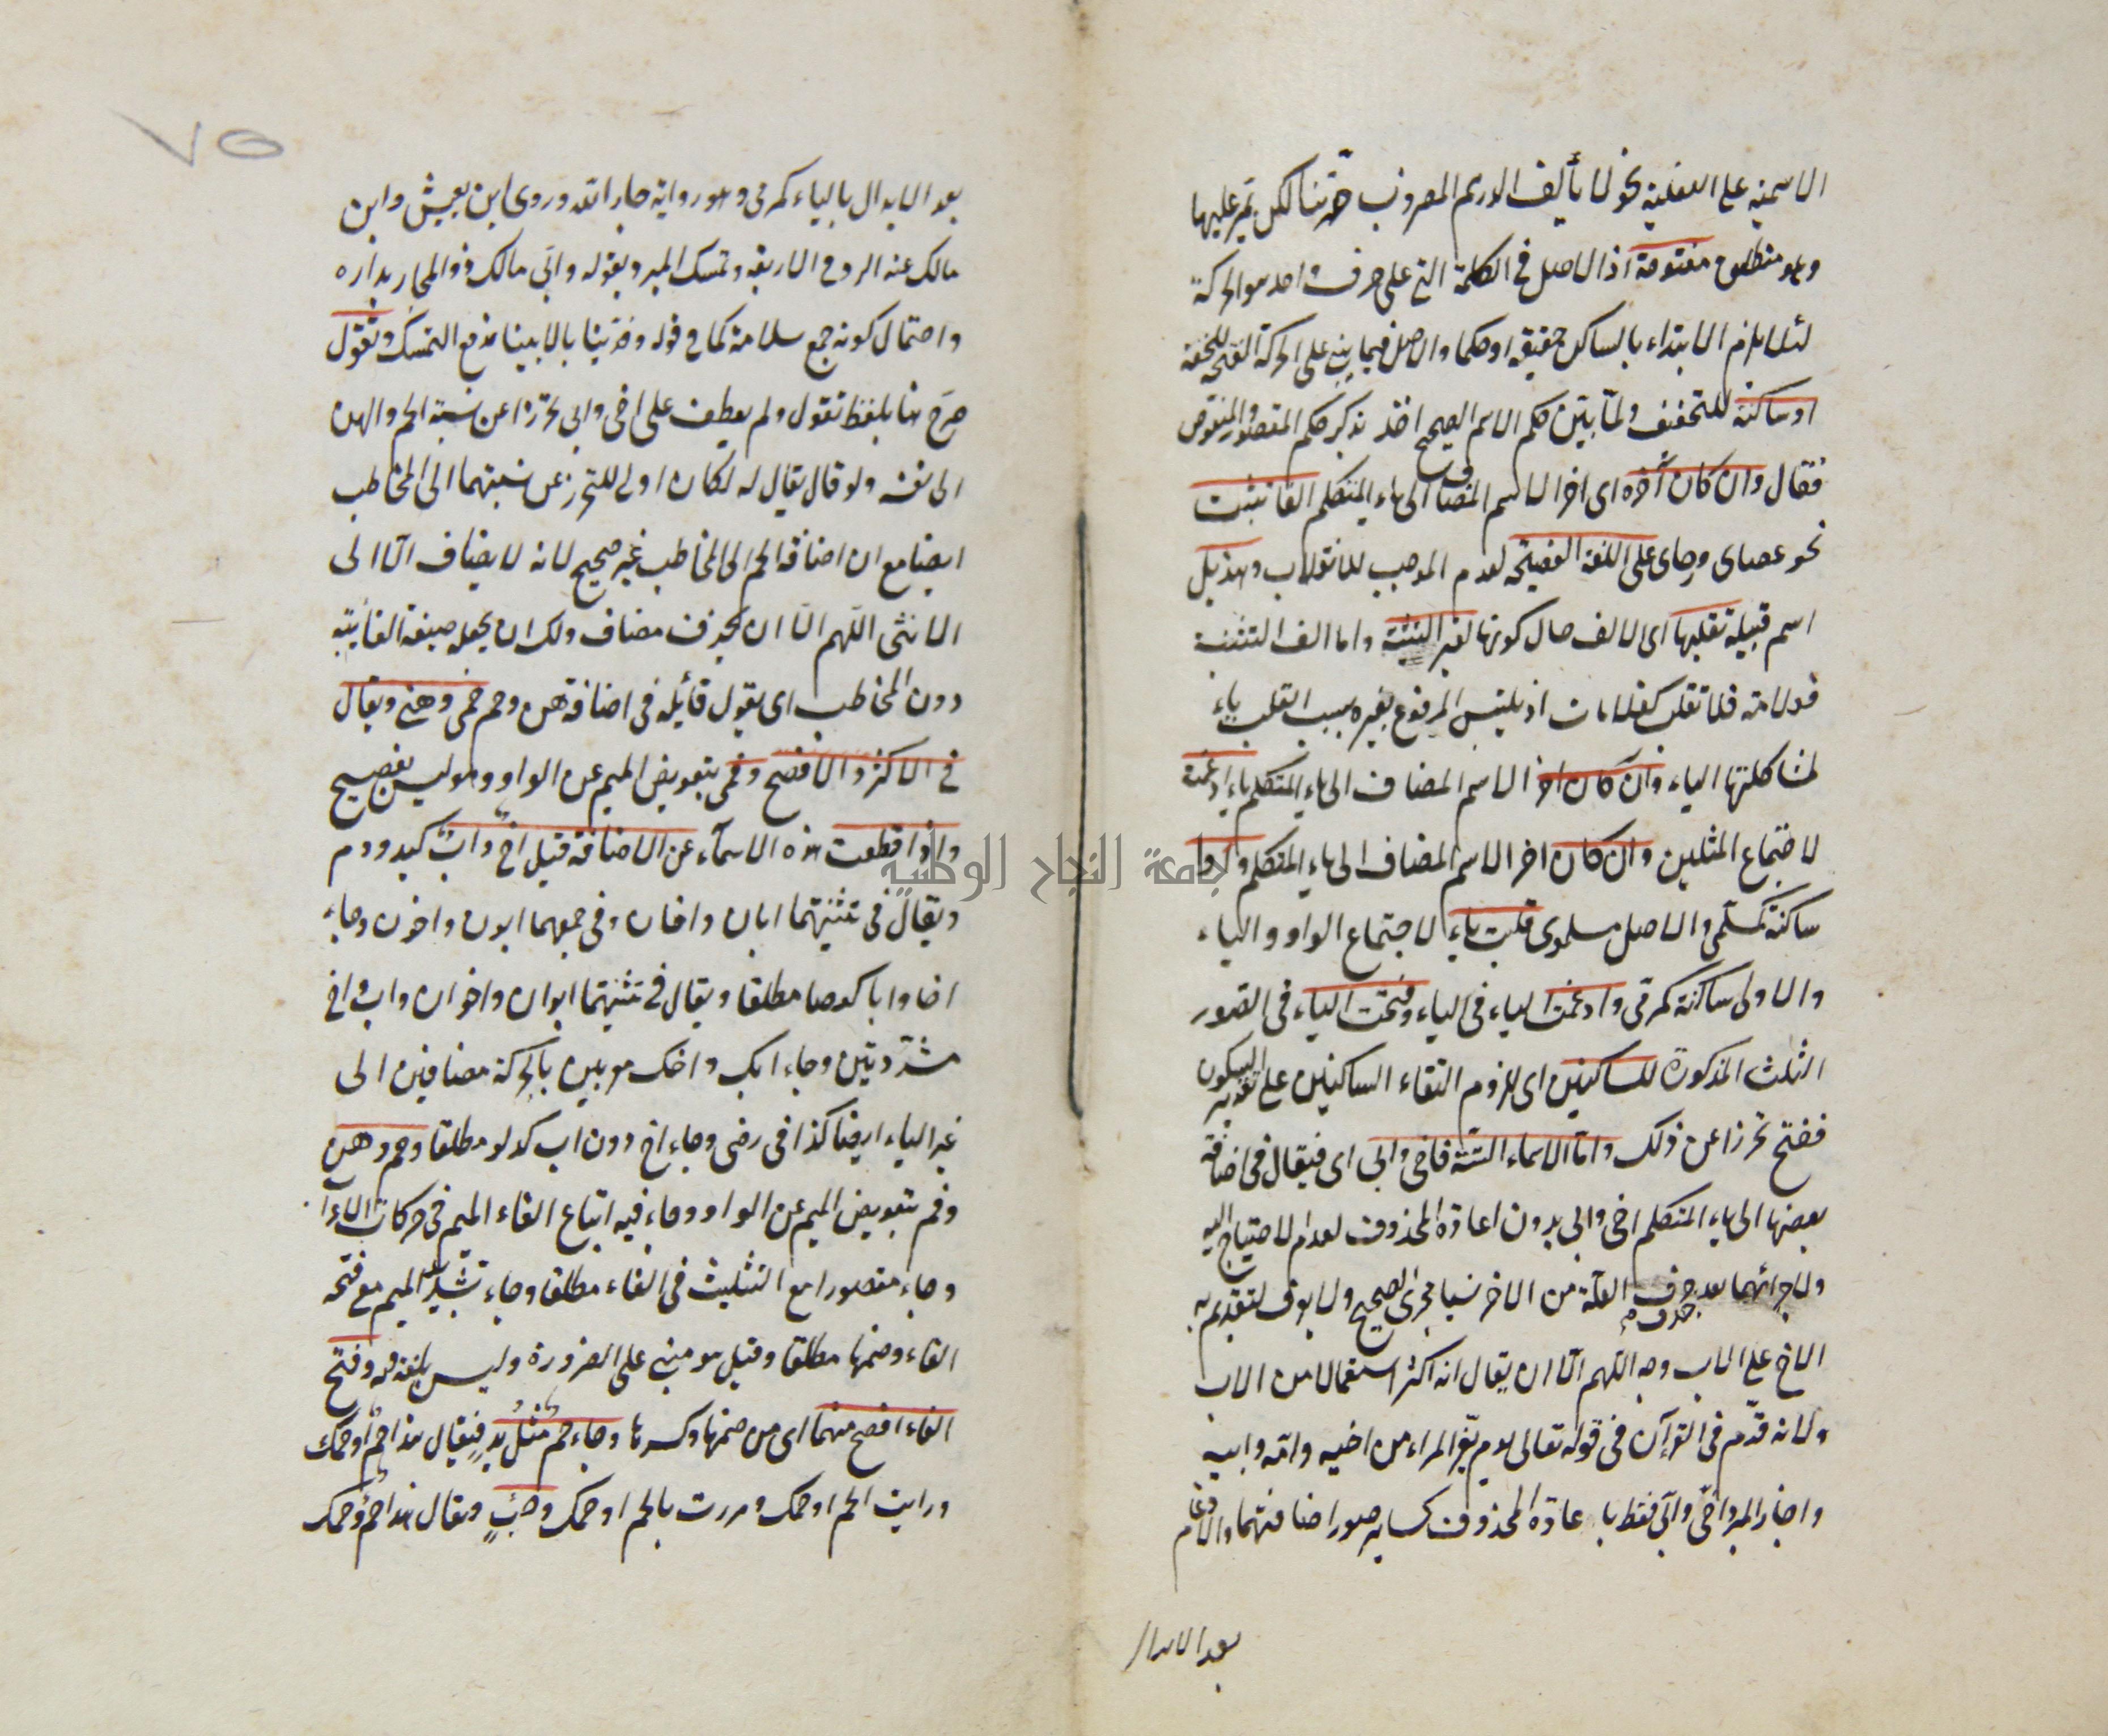 الاسمية على الفعلية نحو لا يألف الدرهم المضروب خرقتنا لكن يمر عليها
وهو منطلق مفتوحة اذ الاصل في الكلمة التي على حرف واحد هو الحركة
لئلا يلزم الابتداء بالساكن حقيقة او حكما والاصل فيما بني على الحركة الفتح للخفة
او ساكنة للتخفيف ولما بين حكم الاسم الصحيح اخذ يذكر حكم المقصور والمنقوص
فقال وان كان آخره اى اخر الاسم المضاف الى ياء المتكلم الفا تثبت
نحو عصاى ورحاى على اللغة الفصيحة لعدم الموجب للانقلاب وهذيل
اسم قبيلة تقلبها اى الالف حال كونها لغير التثنية واما الف التثنية
فلا تقلب كغلاماى اذ يلتبس المرفوع بغيره بسبب القلب ياء
لمشاكلتها الياء وان كان اخر الاسم المضاف الى ياء المتكلم ياء ادغمت
لاجتماع المثلين وان كان اخر الاسم المضاف الى ياء المتكلم واوا
ساكنة كمسلمى والاصل مسلموى قلبت ياء لاجتماع الواو والياء
والاولى ساكنة كمرمى وادغمت الياء في الياء وفتحت الياء في الصور
الثلث المذكورة للساكنين اى للزوم التقاء الساكنين على تقدير السكون
ففتح تحرزا عن ذلك واما الاسماء الستة فاخى وابى اى فيقال في اضافة
بعضها الى ياء المتكلم اخى وابى بدون اعادة المحذوف لعدم الاحتياج اليه
ولاجرائهما بعد حذف حرف العلة من الاخر نسيا مجرى الصحيح ولا يعرف لتقديم
الاخ على الاب وجه اللهم الا ان يقال انه اكثر استعمالا من الاب
ولانه قدم في القرآن في قوله تعالى يوم يفر المرء من اخيه وامه وابيه
واجاز المبرد اخى وابى فقط باعادة المحذوف كساير صور اضافتهما والادغام
بعد الابدال
٧٥
بعد الابدال بالياء كمرمى وهو رواية جار الله وروى ابن يعيش وابن
مالك عنه الرد في الاربعة وتمسك المبرد بقوله وابى مالك ذو المجاز بداره
واحتمال كونه جمع سلامة كما في قوله وفديننا بالابينا يدفع التمسك وتقول
صرح هنا بلفظ تقول ولم يعطف على اخى وابى تحرزا عن نسبة الحم والهن
الى نفسه ولو قال يقال له لكان اولى للتحرز عن نسبتهما الى المخاطب
ايضا مع ان اضافة الحم الى المخاطب غير صحيح لانه لا يضاف الا الى
الانثى اللهم الا ان يحذف مضاف ولك ان يجعل صيغة الغائبة
دون المخاطب اى يقول قائله في اضافة هن وحم حمى وهنى ويقال
في الاكثر والافصح وفمى بتعويض الميم عن الواو وهو ليس بفصيح
واذا قطعت هذه الاسماء عن الاضافة قيل اخ واب كيد ودم
ويقال في تثنيتهما ابان واخان وفي جمعهما ابون واخون وجاء
اخا وابا كعصا مطلقا ويقال في تثنيتهما ابوان واخوان واب واخ
مشددتين وجاء ابك واخك معربين بالحركة مضافين الى
غير الياء ايضا كذا في رضى وجاء اخ دون اب كدلو مطلقا وحم وهن
وفم بتعويض الميم عن الواو وجاء فيه اتباع الفاء الميم في حركات
وجاء مقصورا مع التثليث في الفاء مطلقا وجاء تشديد الميم مع فتحة
الفاء وضمها مطلقا وقيل هو مبنى على الضرورة وليس بلغة فيه وفتح
الفاء افصح منهما اى من ضمها وكسرها وجاء حم مثل يد فيقال هذا حم او حمك
ورايت الحم او حمك ومررت بالحم او حمك وخبء ويقال هذا حمؤ وحمؤك
جامعة النجاح الوطنية